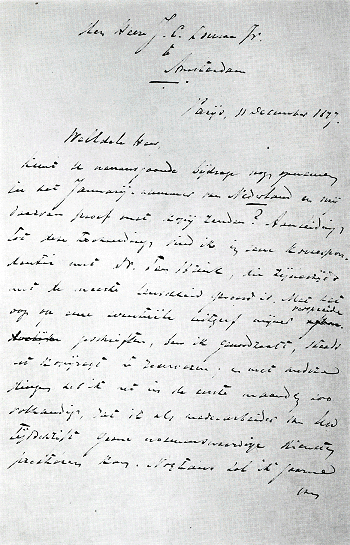 Den Heere J. C. Loman Jr.
te
Amsterdam
Parijs, 11 December 1877.
WelEdele Heer,
Kunt U nevensgaande bijdrage nog opnemen
in het Januarij-nummer van Nederland en mij
daarvan proef met kopij zenden? Aanleiding
tot deze toezending vind ik in eene korrespon-
dentie met Dr. Ten Brink, die zijnerzijds
met de meeste heuschheid gevoerd is. Met het
oog op eene eventuele uitgaaf mijner verspreide
geschriften, ben ik genoodzaakt, steeds
het kopijregt te reserveren; en met andere
dingen heb ik het in de eerste maanden zoo
volhandig, dat ik als medearbeider in Uw
tijdschrift geene noemenswaardige diensten
presteren kan. Nogtans zal ik gaarne